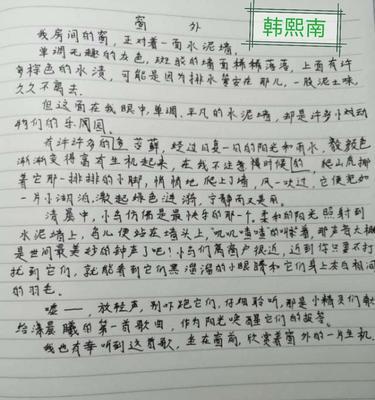 韩熙南
窗 外
我房间的窗,正对着一面水泥墙。
单调无趣的灰色,斑驳的墙面稀稀落落,上面有许
多棕色的水渍,可能是因为排水管安在那儿,一股泥土味
久久不离去。
但这面在我眼中,单调、平凡的水泥墙,却是许多小动
物们的乐园。
有许许多的苔藓,经过日复一日的阳光和雨水,数颜色
渐渐变得富有生机起来,在我不注意的时候,爬上虎挪
着它那一排排的小脚,悄悄地爬上了墙,风一吹过,它便宛如
一片小湖泊,激起绿色涟漪,宁静而又是用。
清晨中,小鸟仿佛是最快乐的那一个,柔和的阳光照射到
水泥墙上,鸟儿便站在墙头上,叽叽喳喳的叫
是世间最美妙的钟声了吧!小鸟们离窗户很近,近到你只要不打
扰到它们,就能看到它们黑溜溜的小眼睛和它们身上灰白相间
的羽毛。
嘘——,放轻声,别吓跑它们,仔细聆听,那是小精灵们献
给清晨曦的第一首歌曲,作为阳光唤醒它们的报答。
我也有幸听到这首歌,坐在窗前,欣赏着窗外的一片生机。